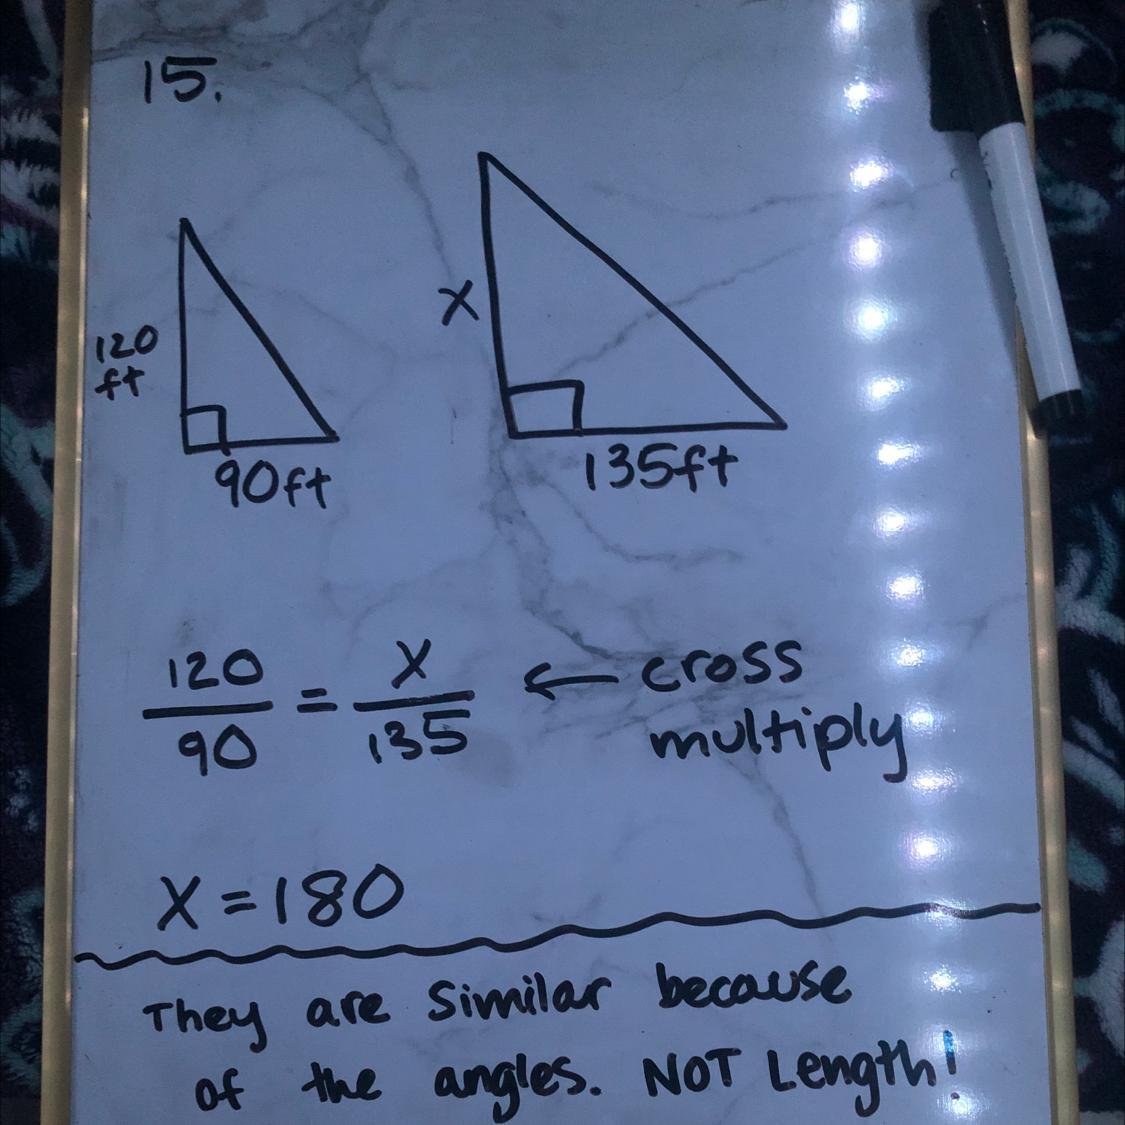 15.
120
ft
90ft
x
135ft
120
90
=
x
135
← cross
multiply
x = 180
They are similar because
of the angles. NOT Length!